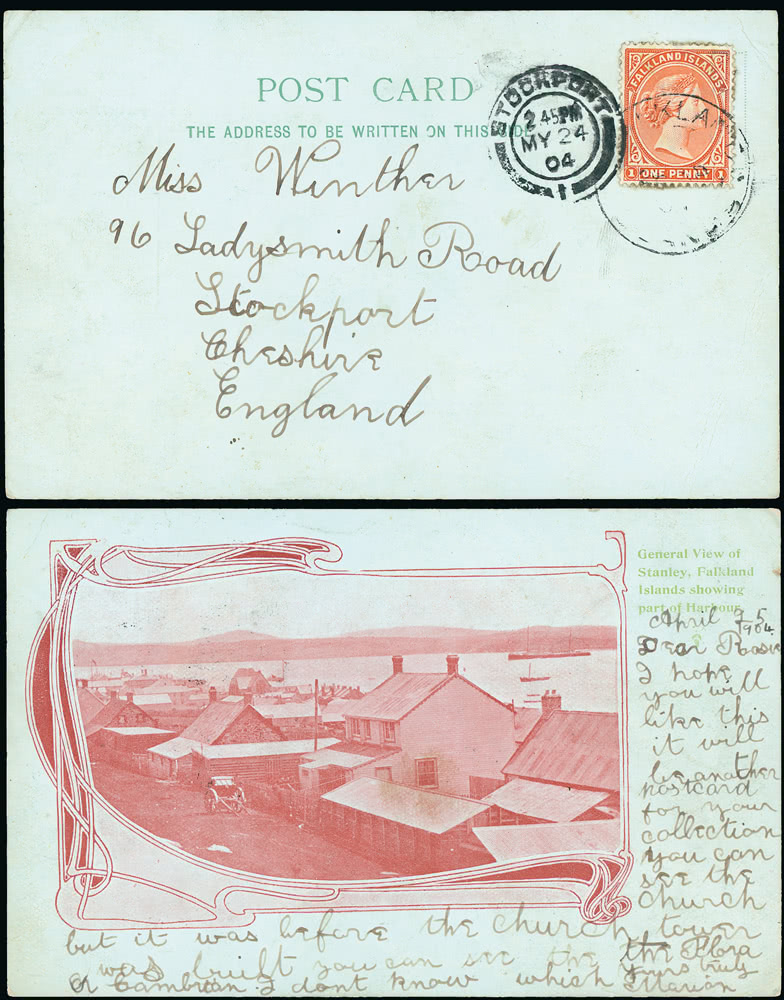 POST CARD
THE ADDRESS TO BE WRITTEN ON THIS SIDE
STOCKPORT
2.45PM
MY 24
04
1
FALKLAND ISLANDS
1 ONE PENNY 1
Miss Winther
96 Ladysmith Road
Stockport
Cheshire
England
General View of
Stanley, Falkland
Islands showing
part of Harbour.
April
1904
Dear Rosie
I hope
you will
like this
it will
be another
postcard
for your
collection
you can
see the
church
but it was before the church tower
was built you can see the the Flora
or Cambrian I dont know which
yours truly
Marion